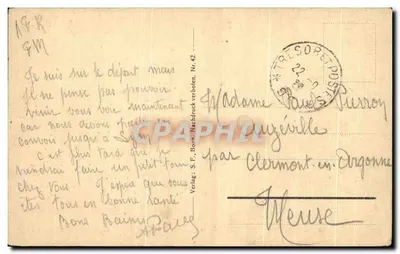 Je suis sur le départ mais
je ne pense pas pouvoir
venir vous voir maintenant
car nous avons
convoi jusqu'à
c'est plus tard que je
viendrai faire un petit tour
chez vous. J'espère que vous
êtes tous en bonne santé
Bons Baisers
Verlag: S. F., Bonn. Nachdruck verboten. Nr. 42.
TRESOR ET POSTES
22
Madame Paul Pierron
Auzéville
par Clermont-en-Argonne
Meuse